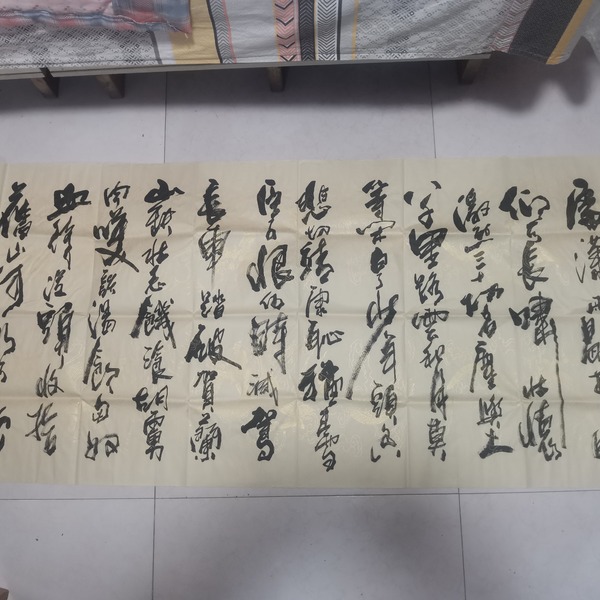 處瀟雨歇
仰天長嘯壯懷
激烈三十功名塵與土
八千里路雲和月莫
等閒白了少年頭空
悲切靖康恥猶未雪
臣子恨何時滅駕
長車踏破賀蘭
山缺壯志飢餐胡虜
肉笑談渴飲匈奴
血待從頭收拾
舊山河朝天